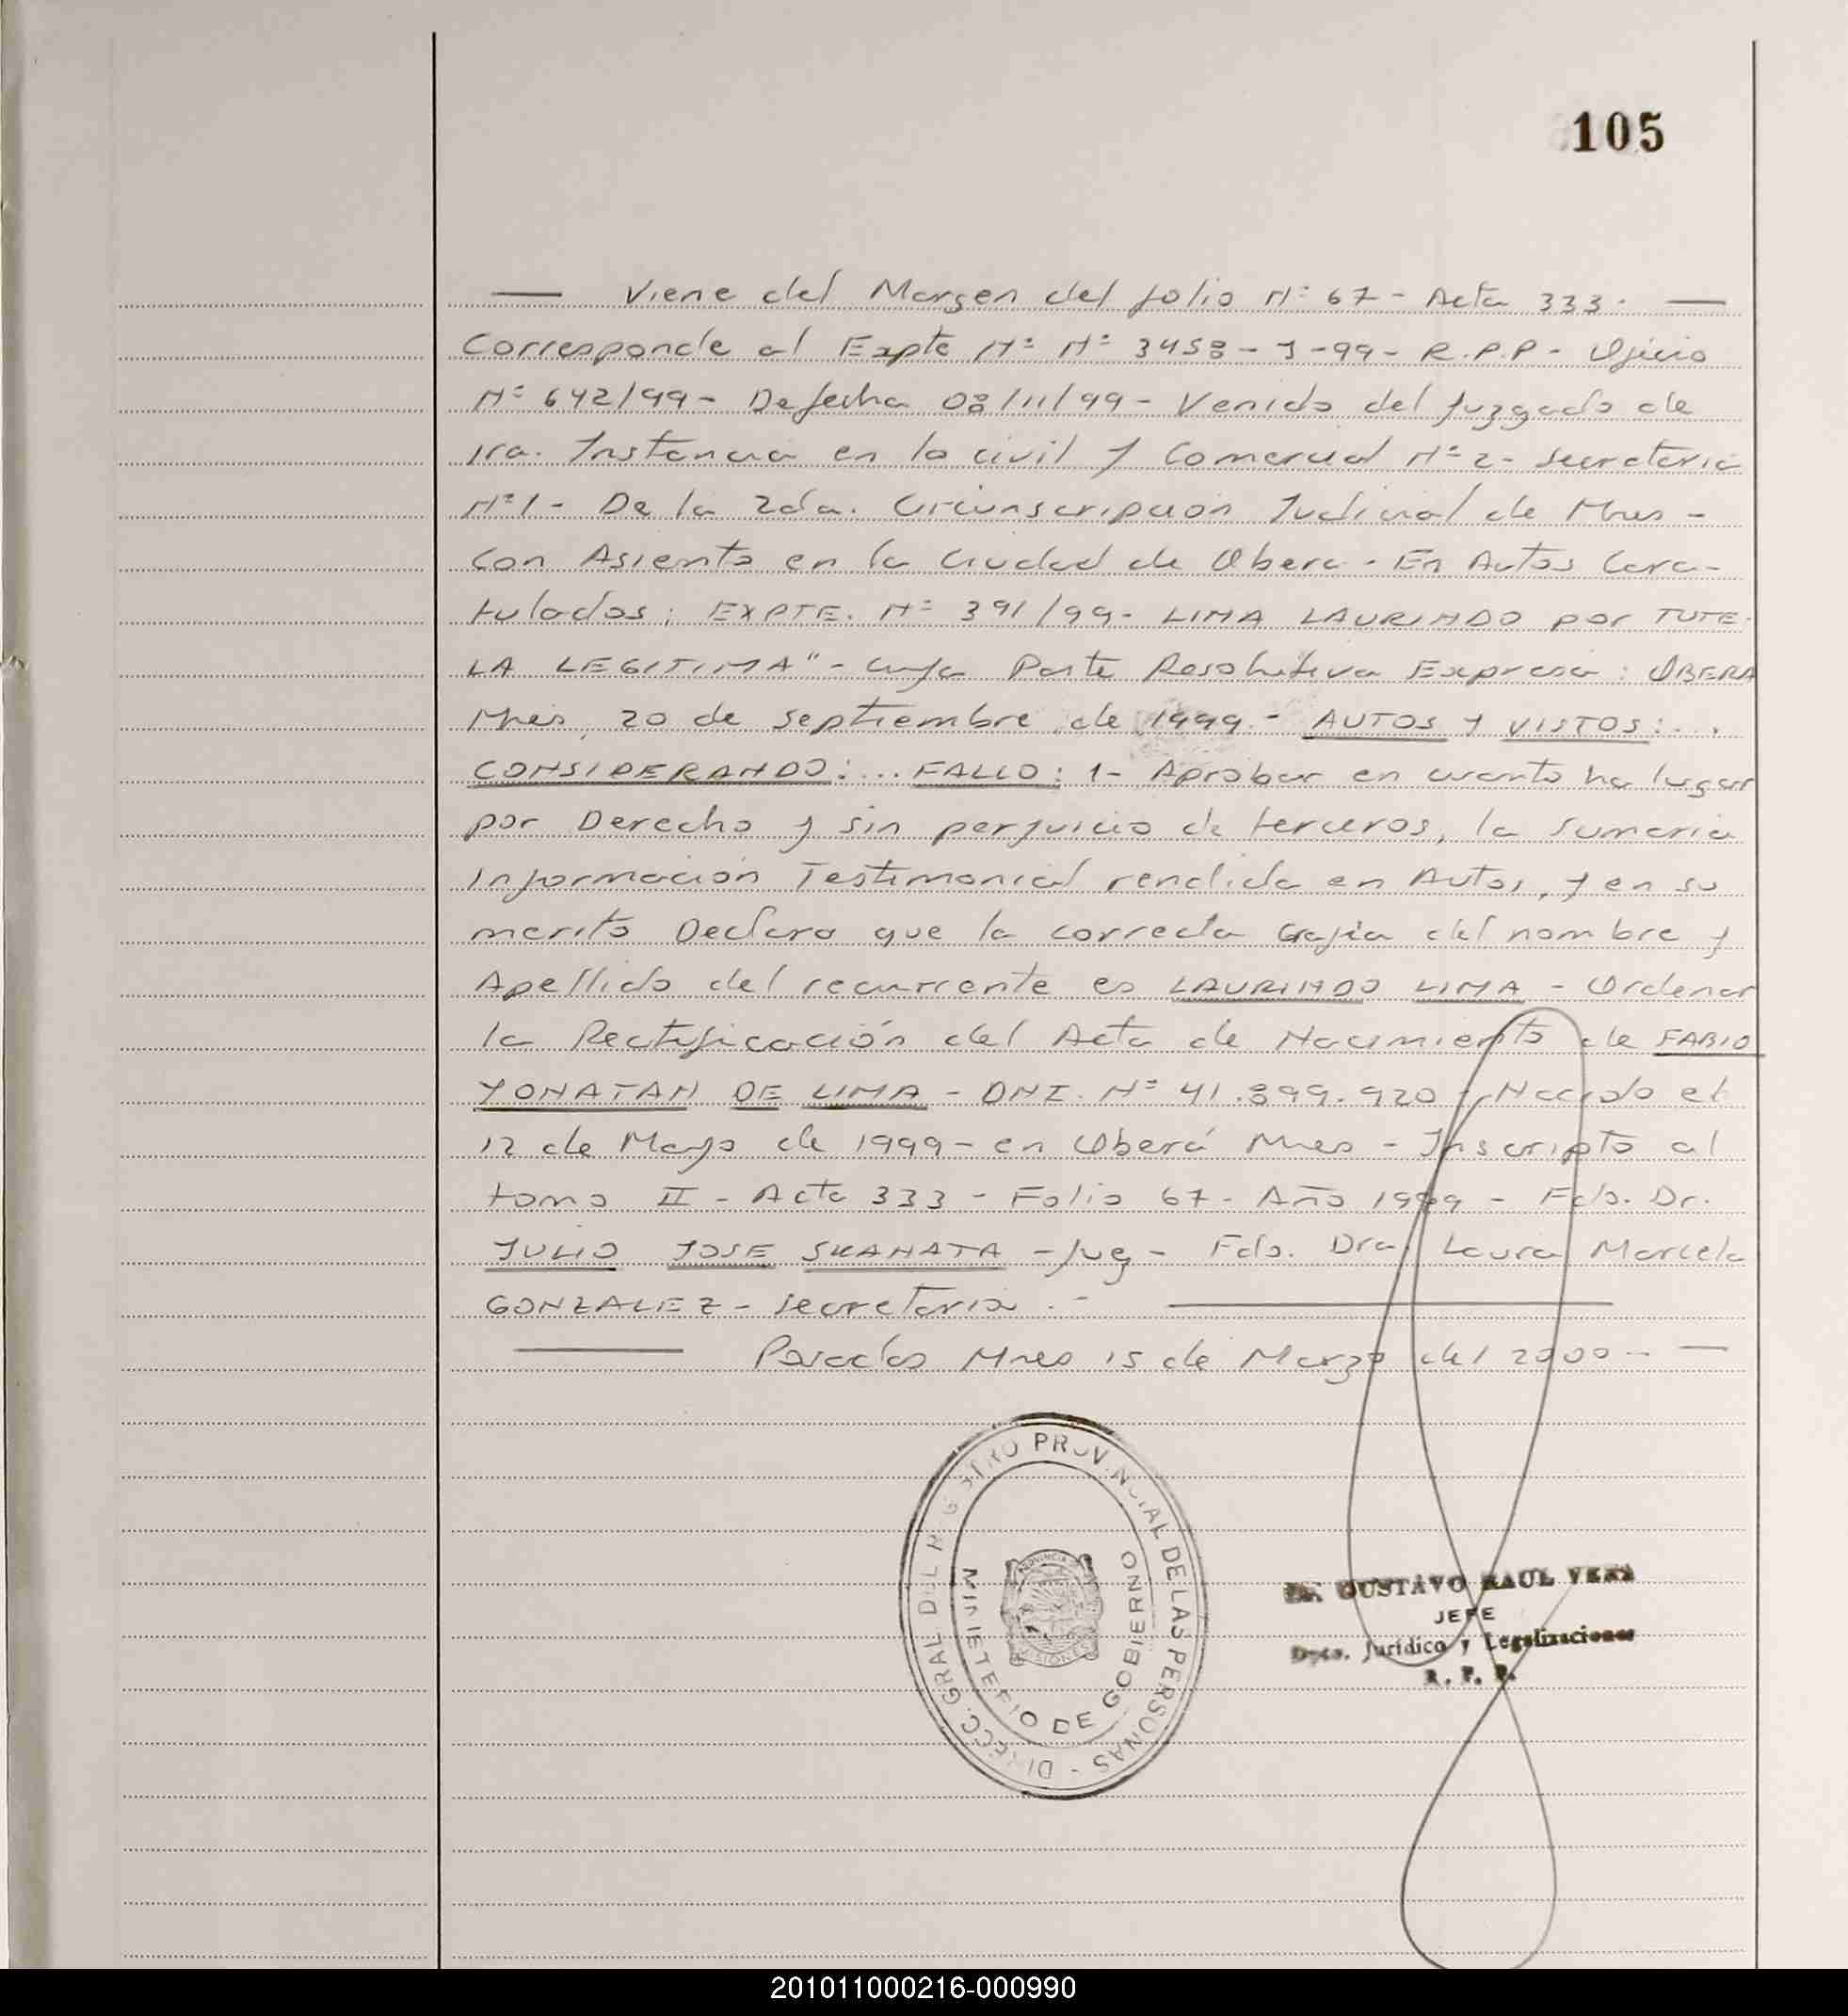 105
— Viene del Margen del folio Nº 67 - Acta 333. —
Corresponde al Expte Nº Nº 3458 - J - 99 - R.P.P - Oficio
Nº 642/99 - De fecha 08/11/99 - Venido del Juzgado de
1ra. Instancia en lo civil y Comercial Nº 2 - Secretaria
Nº 1 - De la 2da. Circunscripción Judicial de Mnes -
Con Asiento en la Ciudad de Obera. En Autos Cara-
tulados; EXPTE. Nº 391/99 - LIMA LAURINDO por TUTE-
LA LEGITIMA" - cuya Parte Resolutiva Expresa: OBERA
Mnes, 20 de septiembre de 1999 - AUTOS Y VISTOS:...
CONSIDERANDO:... FALLO: 1- Aprobar en cuanto ha lugar
por Derecho y sin perjuicio de terceros, la sumaria
Información Testimonial rendida en Autos, y en su
merito Declaro que la correcta Grafia del nombre y
Apellido del recurrente es LAURINDO LIMA - Ordenar
la Rectificación del Acta de Nacimiento de FABIO
YONATAN DE LIMA - DNI. Nº 41.899.920 - Nacido el
12 de Mayo de 1999 - en Oberá Mnes - Inscripto al
tomo II - Acta 333 - Folio 67 - Año 1999 - Fdo. Dr.
JULIO JOSE SKANATA - Juez - Fdo. Dra. Laura Marcela
GONZALEZ - Secretaria .-
Posadas Mnes 15 de Marzo del 2000 - —
DIRECC. GRAL. DEL REGISTRO PROVINCIAL DE LAS PERSONAS -
MINISTERIO DE GOBIERNO
PROVINCIA
MISIONES
Dr. GUSTAVO RAUL VERA
JEFE
Dpto. Jurídico y Legalizaciones
R. P. P.
201011000216-000990